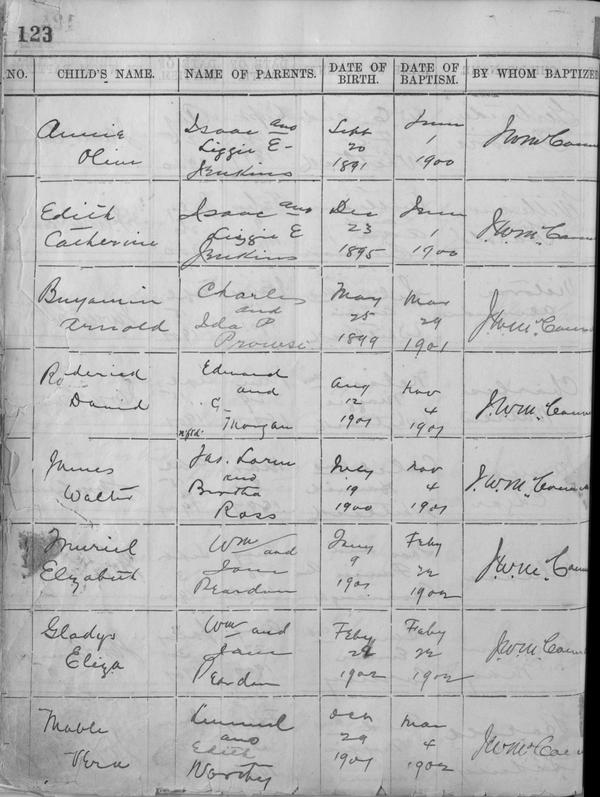 123
NO. CHILD'S NAME. NAME OF PARENTS. DATE OF BIRTH. DATE OF BAPTISM. BY WHOM BAPTIZED
Annie Isaac and Sept June
Olive Lizzie E- 20 1 J.W.McConn
Jenkins 1891 1900
Edith Isaac and Dec June
Catherine Lizzie E 23 1 J.W.McConn
Jenkins 1895 1900
Benjamin Charles May Mar
Arnold and 25 29 J.W.McConn
Ida P 1899 1901
Prowse
Roderick Edward Aug Nov
David and 12 4 J.W.McConn
G- 1901 1901
Nfld. Morgan
James Jas. Loren Nov
Walter and 19 4 J.W.McConn
Bertha 1900 1901
Ross
Muriel Wm and Feby
Elizabeth Jane 9 22 J.W.McConn
Reardon 1901 1902
Gladys Wm and Feby Feby
Eliza Jane 22 J.W.McConn
Reardon 1902 1902
Mable Lemuel Mar
Vera and 29 4 J.W.McConn
Edith 1901 1902
Worthy